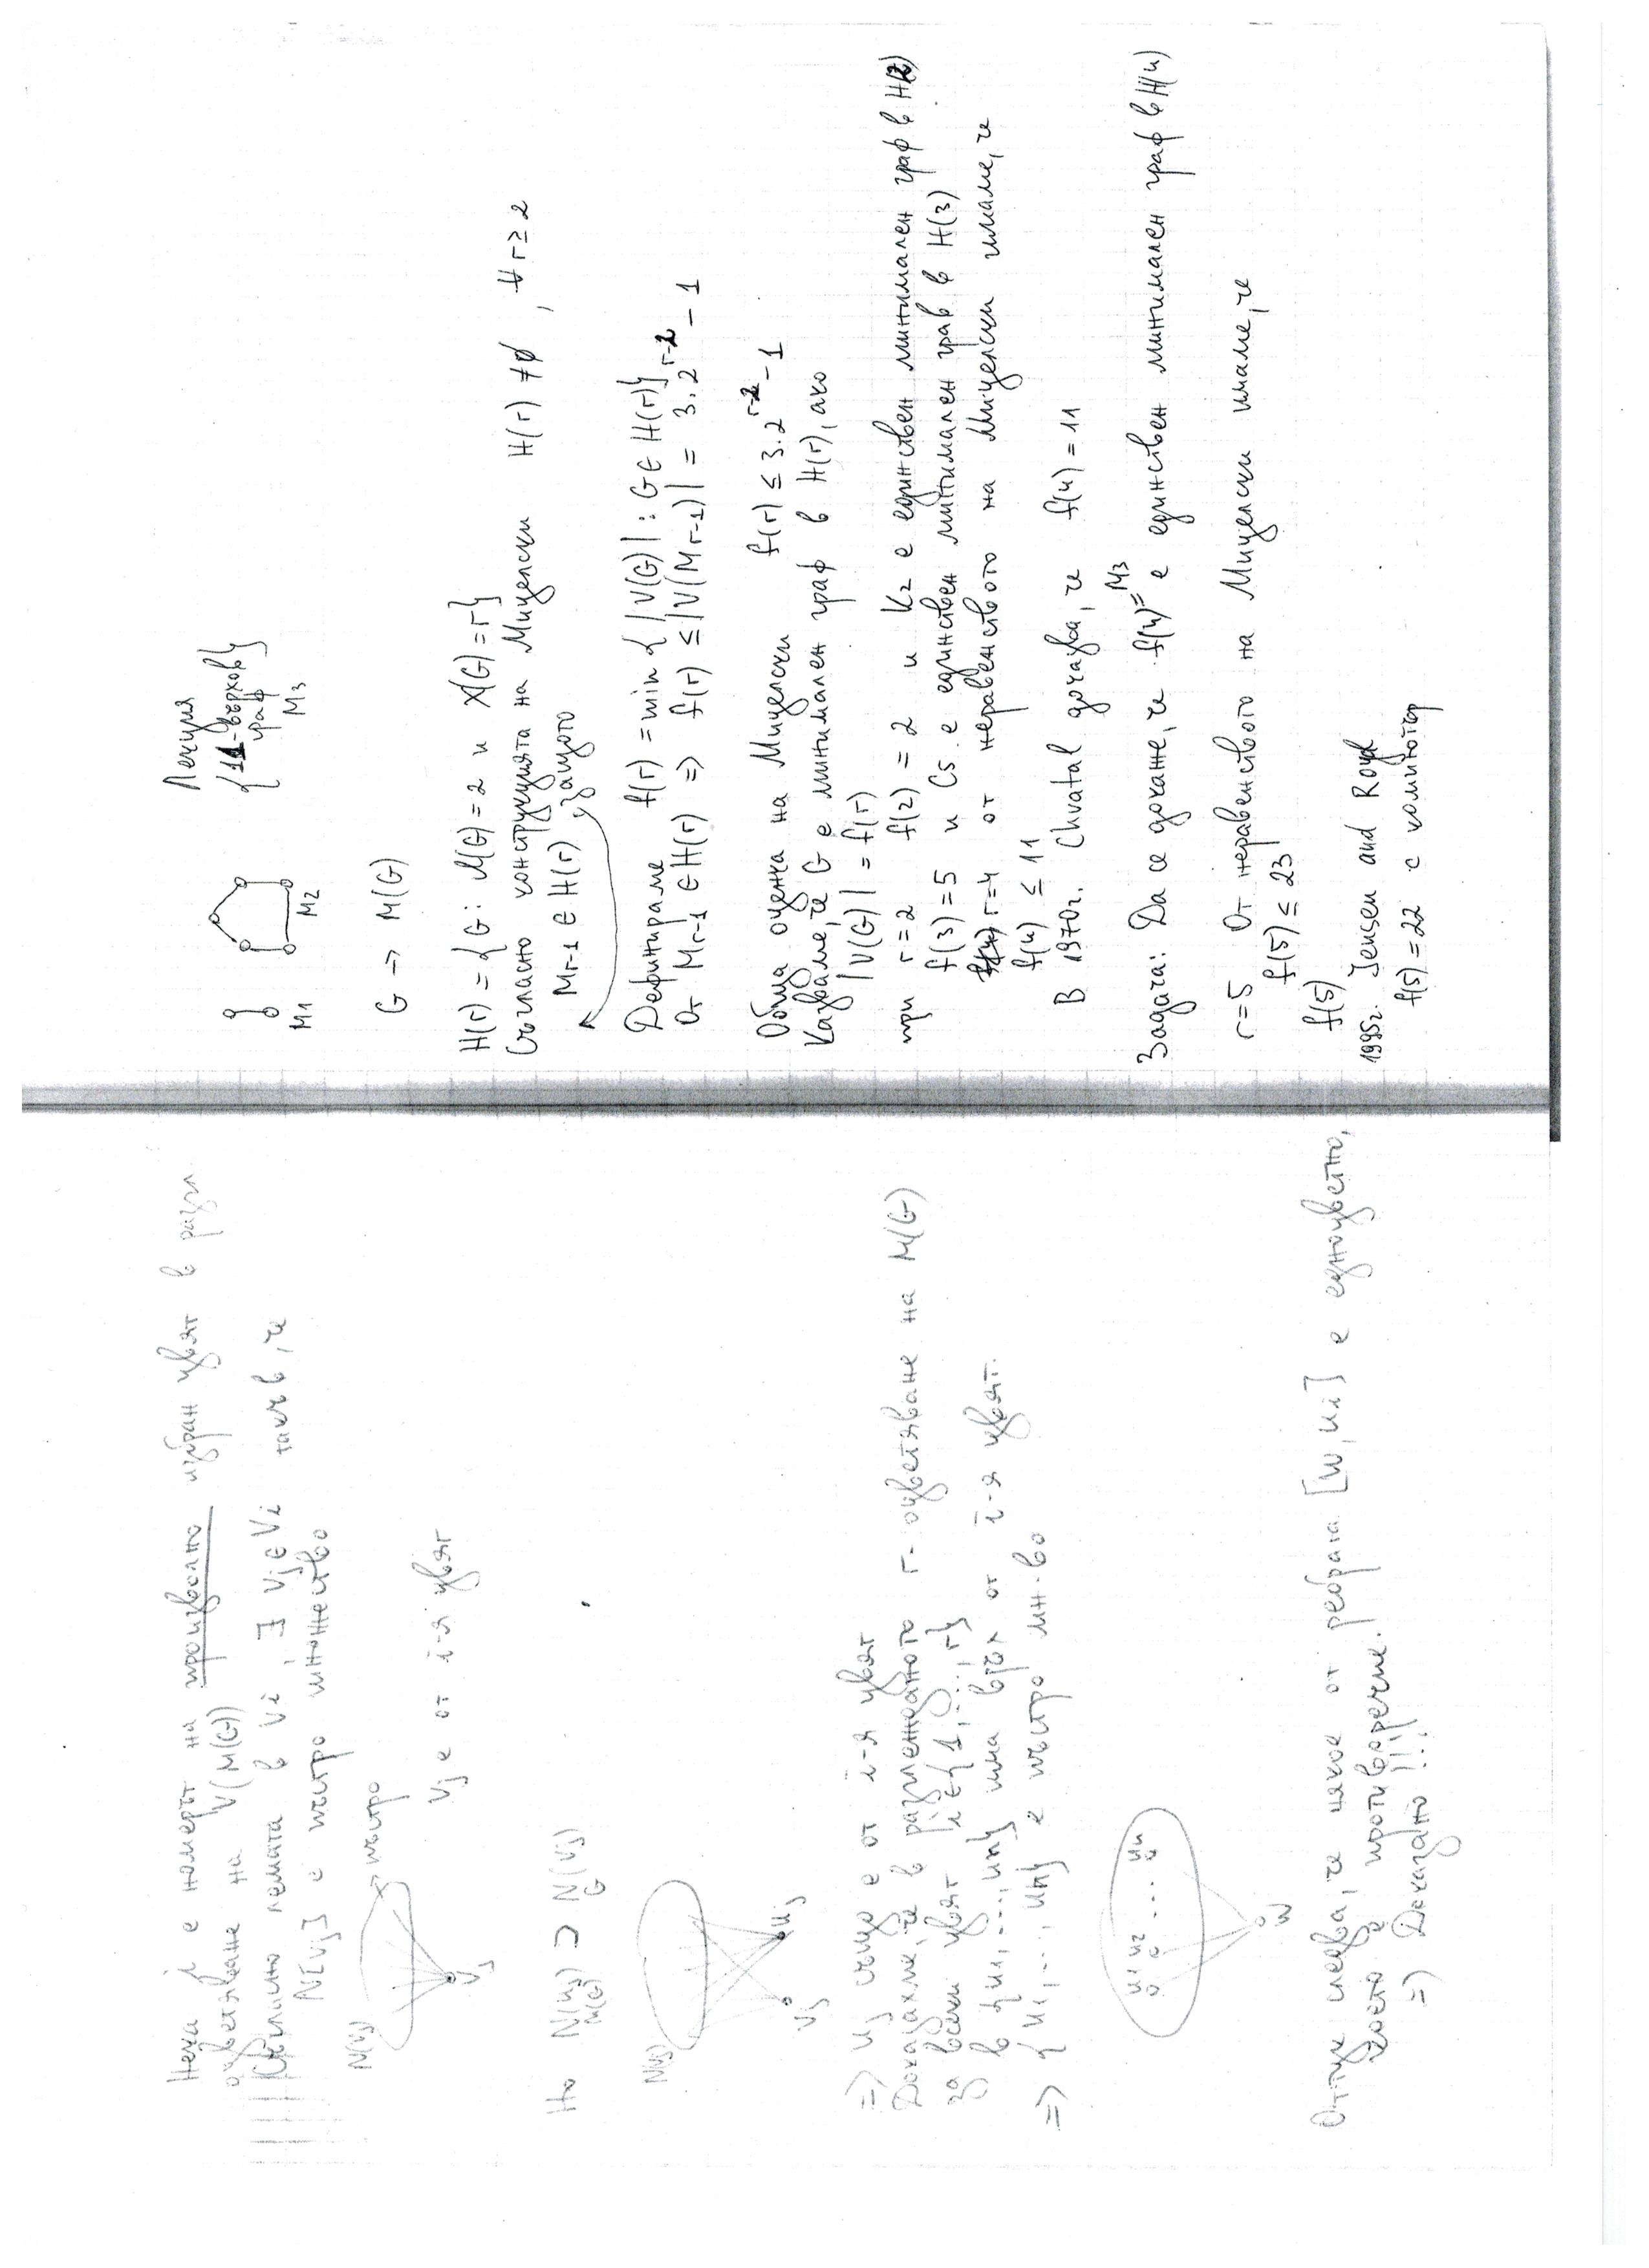 Нека i е номерът на произволно избран цвят в разгл
оцветяване на V(M(G))
Съгласно лемата в Vi, ∃ vj ∈ Vi такъв, че
N[vj] е пъстро множество
N(vj) → пъстро
vj
vj е от i-я цвят
Но N(uj) ⊃ N(vj)
M(G) G
N(vj)
vj uj
=> uj също е от i-я цвят
Доказахме, че в разглежданото r-оцветяване на M(G)
за всеки цвят i ∈ {1, ..., r}
в {u1, ..., un} има връх от i-я цвят.
=> {u1, ..., un} е пъстро мн-во
u1 u2 ... un
w
Оттук следва, че някое от ребрата [w, ui] е едноцветно,
което е противоречие.
=> Доказано !!!
Лекция
{11-върхов}
граф
M1 M2 M3
G => M(G)
H(r) = {G: M(G) = 2 и χ(G) = r}
Съгласно конструкцията на Мицелски H(r) ≠ ∅, ∀ r ≥ 2
Mr-1 ∈ H(r) защото
Дефинираме f(r) = min {|V(G)| : G ∈ H(r)}
От Mr-1 ∈ H(r) => f(r) ≤ |V(Mr-1)| = 3.2^{r-2} - 1
Обща оценка на Мицелски f(r) ≤ 3.2^{r-2} - 1
Казваме, че G е минимален граф в H(r), ако
|V(G)| = f(r)
при r=2 f(2) = 2 и K2 е единствен минимален граф в H(2)
f(3) = 5 и C5 е единствен минимален граф в H(3)
r=4 от неравенството на Мицелски имаме, че
f(4) ≤ 11
В 1970г. Chvatal доказва, че f(4) = 11
Задача: Да се докаже, че f(4) = M3 е единствен минимален граф в H(4)
r=5 От неравенството на Мицелски имаме, че
f(5) ≤ 23
f(5)
1995г. Jensen and Royl
f(5) = 22 с компютър